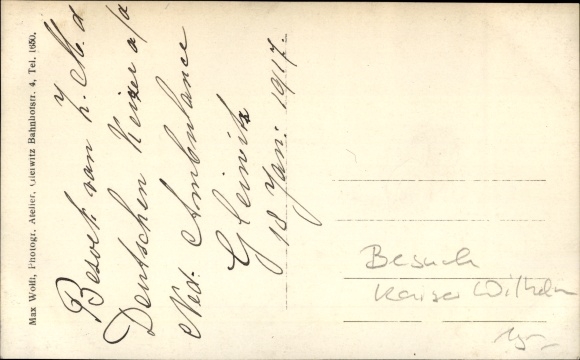 Max Wolff, Photogr. Atelier, Gleiwitz Bahnhofstr. 4, Tel. 1650.
Besoek van Z. M. d
Deutschen Keizer a/d
Ned. Ambulance
Gleiwitz
18 Jan: 1917.
Besuch
Kaiser Wilhelm